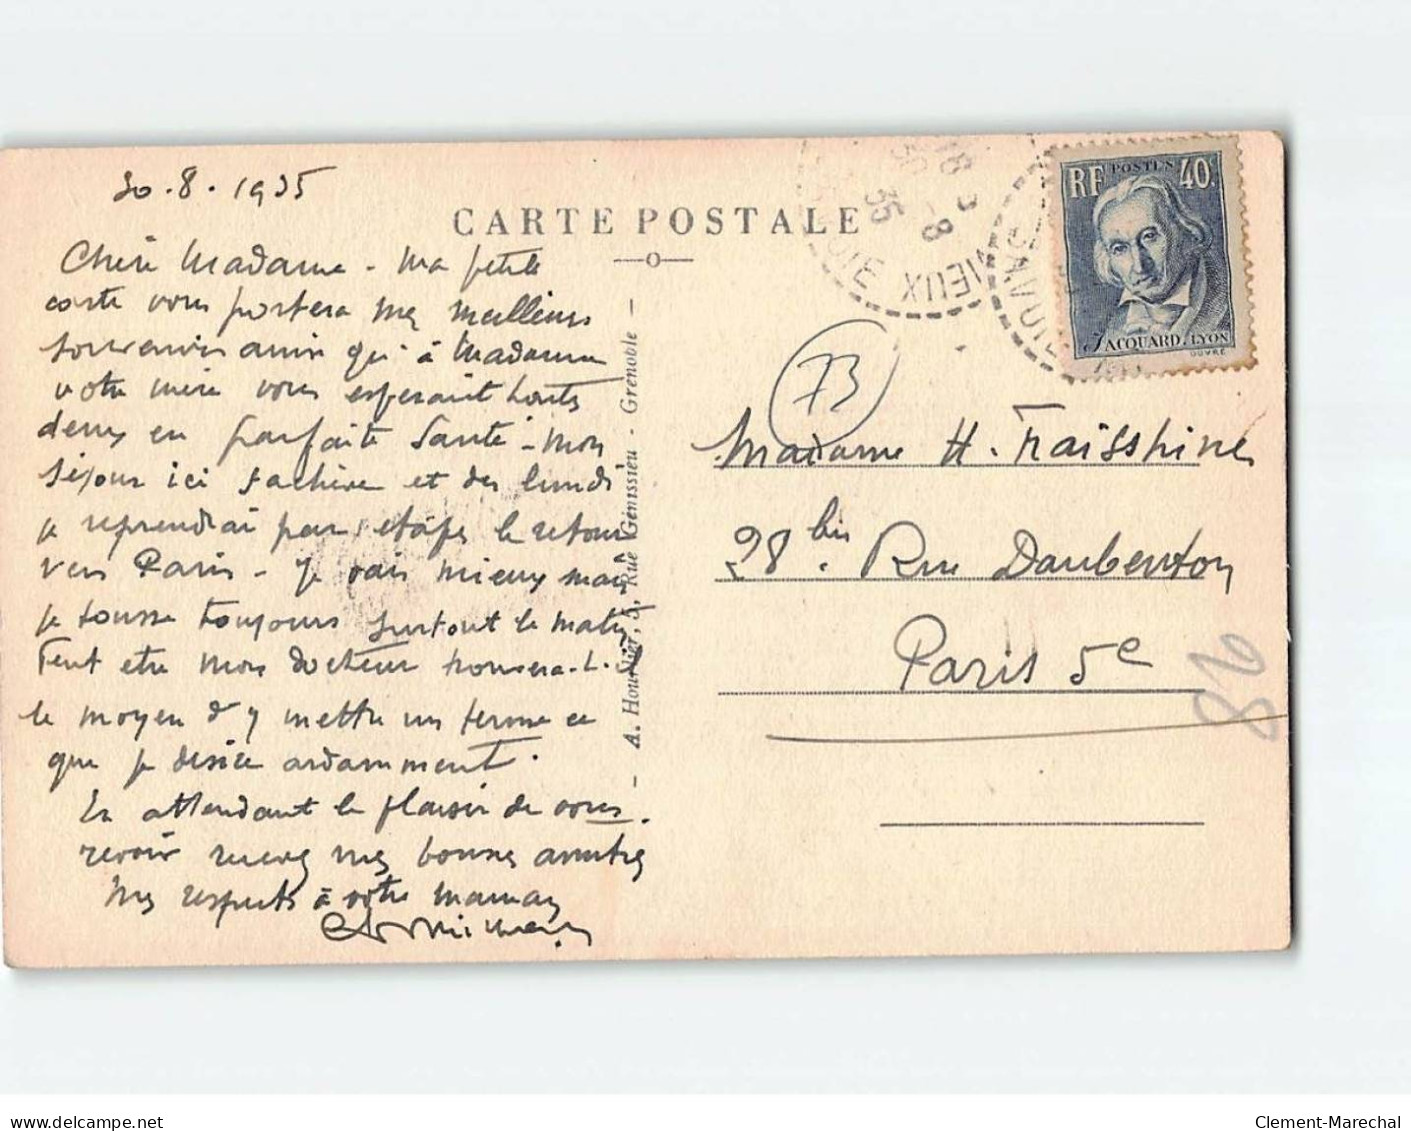 30.8.1935
CARTE POSTALE
Chère Madame - Ma petite
carte vous portera mes meilleurs
souvenirs ainsi qu'à Madame
votre mère vous esperant toutes
deux en parfaite Santé - Mon
séjour ici s'achève et dès lundi
je reprendrai par étapes le retour
vers Paris - Je vais mieux mais
je tousse toujours surtout le matin
Peut etre mon docteur trouvera-t-il
le moyen d'y mettre un terme ce
que je désire ardamment.
En attendant le plaisir de vous
revoir recevez mes bonnes amitiés
Mes respects à votre maman
A. Hourlier, 5, Rue Génissieu - Grenoble
18 3
30 -8
35
VIEUX
SAVOIE
RF POSTES 40c
J ACQUARD. LYON
OUVRÉ
73
Madame H. Fraisshines
28 bis Rue Daubenton
Paris 5e
82
delcampe.net
Clement-Marechal